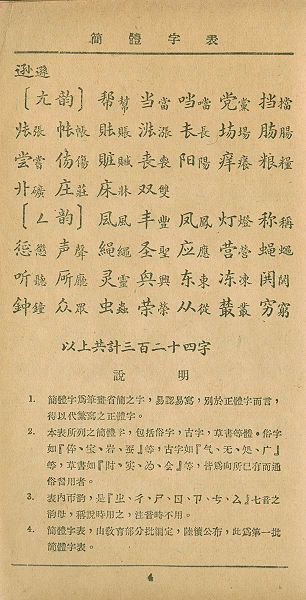 簡體字表
逊遜
〔ㄤ韵〕 帮幫 当當 噹 党黨 挡擋
张張 帐帳 账賬 涨漲 长長 场場 肠腸
尝嘗 伤傷 赃贓 丧喪 阳陽 痒癢 粮糧
卝礦 庄莊 床牀 双雙
〔ㄥ韵〕 风風 丰豐 凤鳳 灯燈 称稱
惩懲 声聲 绳繩 圣聖 应應 营營 蝇蠅
听聽 厅廳 灵靈 兴興 东東 冻凍
鈡鐘 众眾 虫蟲 荣榮 从從 叢 穷窮
以上共計三百二十四字
說明
1. 簡體字爲筆畫省簡之字，易認易寫，別於正體字而言，
得以代繁寫之正體字。
2. 本表所列之簡體字，包括俗字，古字，草書等體。俗字
如『体、宝、岩、蚕』等，古字如『气、无、処、广』
等，草書如『时、实、为、会』等，皆爲向所已有而通
俗習用者。
3. 表內帀韵，是『ㄓ、ㄔ、ㄕ、ㄖ、ㄗ、ㄘ、ㄙ』七音之
韵母，稱說時用之，注音時不用。
4. 簡體字表，由教育部分批編定，陸續公布，此爲第一批
簡體字表。
4